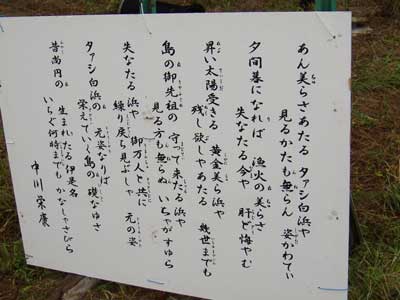 あん美らさあたる タァシ白浜や
見るかたも無らん 姿かわてぃ
夕間暮になれば 漁火の美らさ
失なたる今や 肝ど悔やむ
昇い太陽受きる 黄金美ら浜や
残し欲しゃあたる 幾世までも
島の御先祖の 守って来たる浜や
見る方も無らぬ いちゃがすゆら
失なたる浜や 御万人と共に
繰り戻ち見ぶしゃ 元の姿
タァシ白浜の 元姿なりば
栄えていく島の 礎なゆさ
昔尚円の 生まれたる伊是名
いちぐ何時までも かなしゃさびら
中川栄康